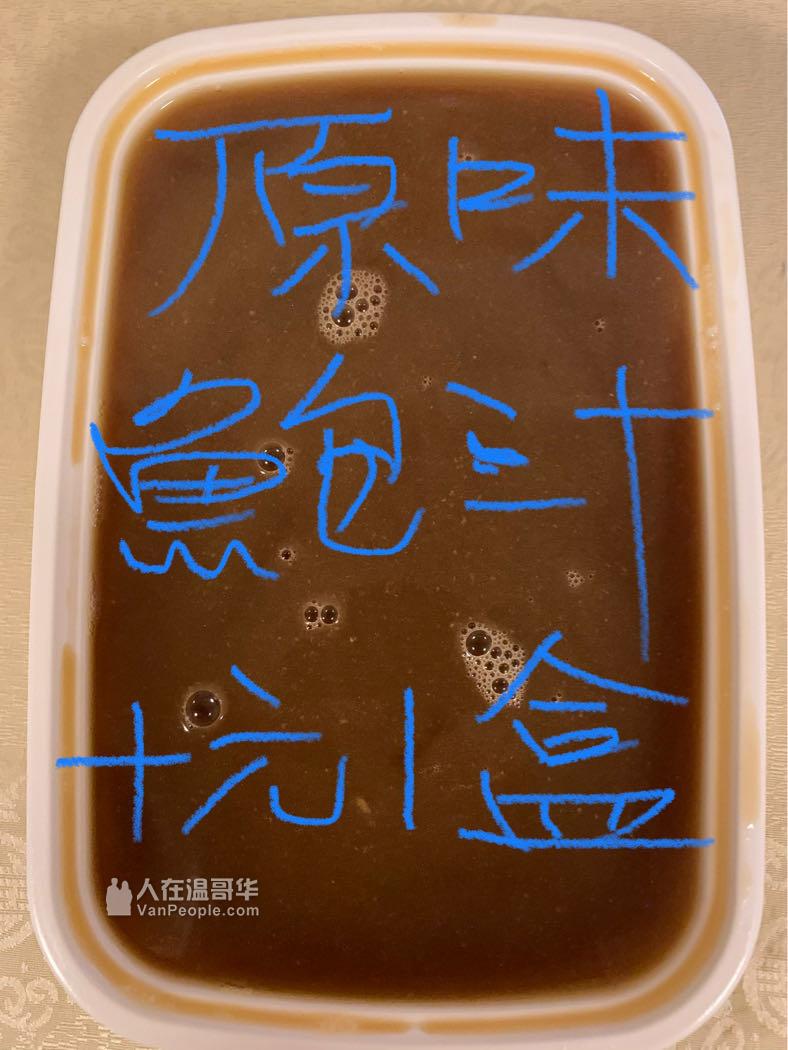 原味
鮑汁
十元1盒
人在温哥华
VanPeople.com